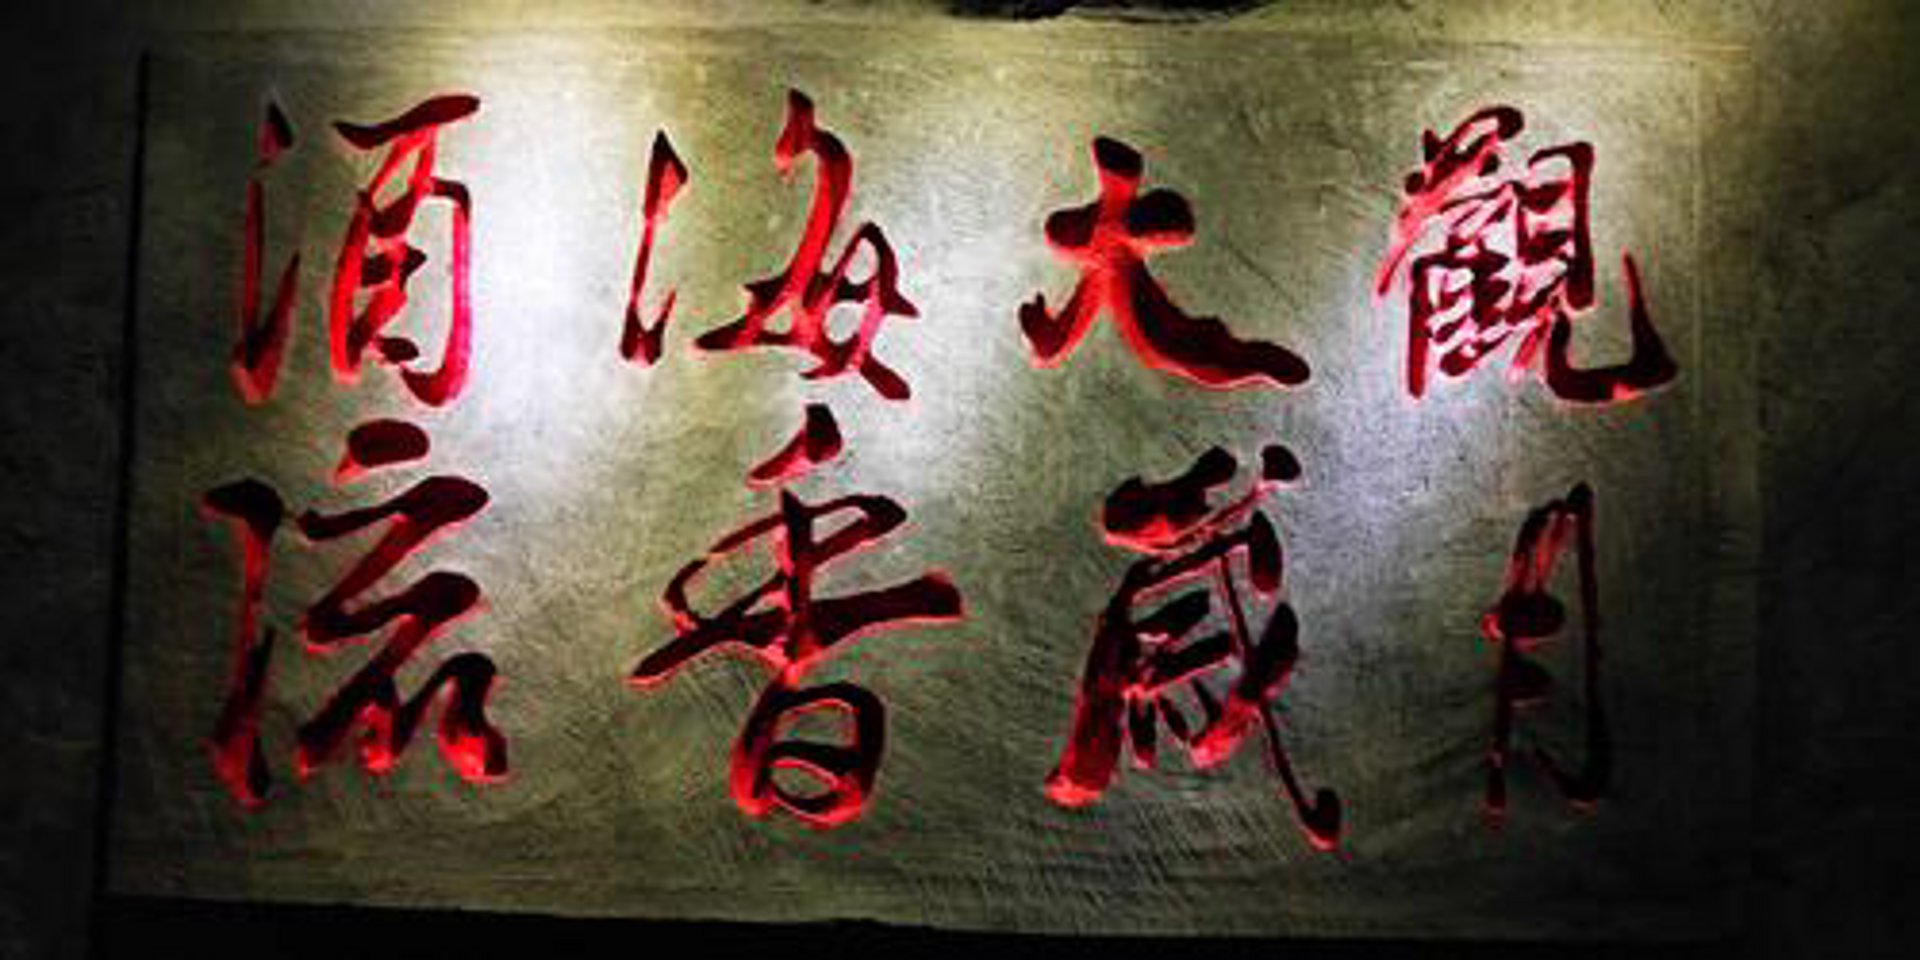 酒海大觀
流香歲月